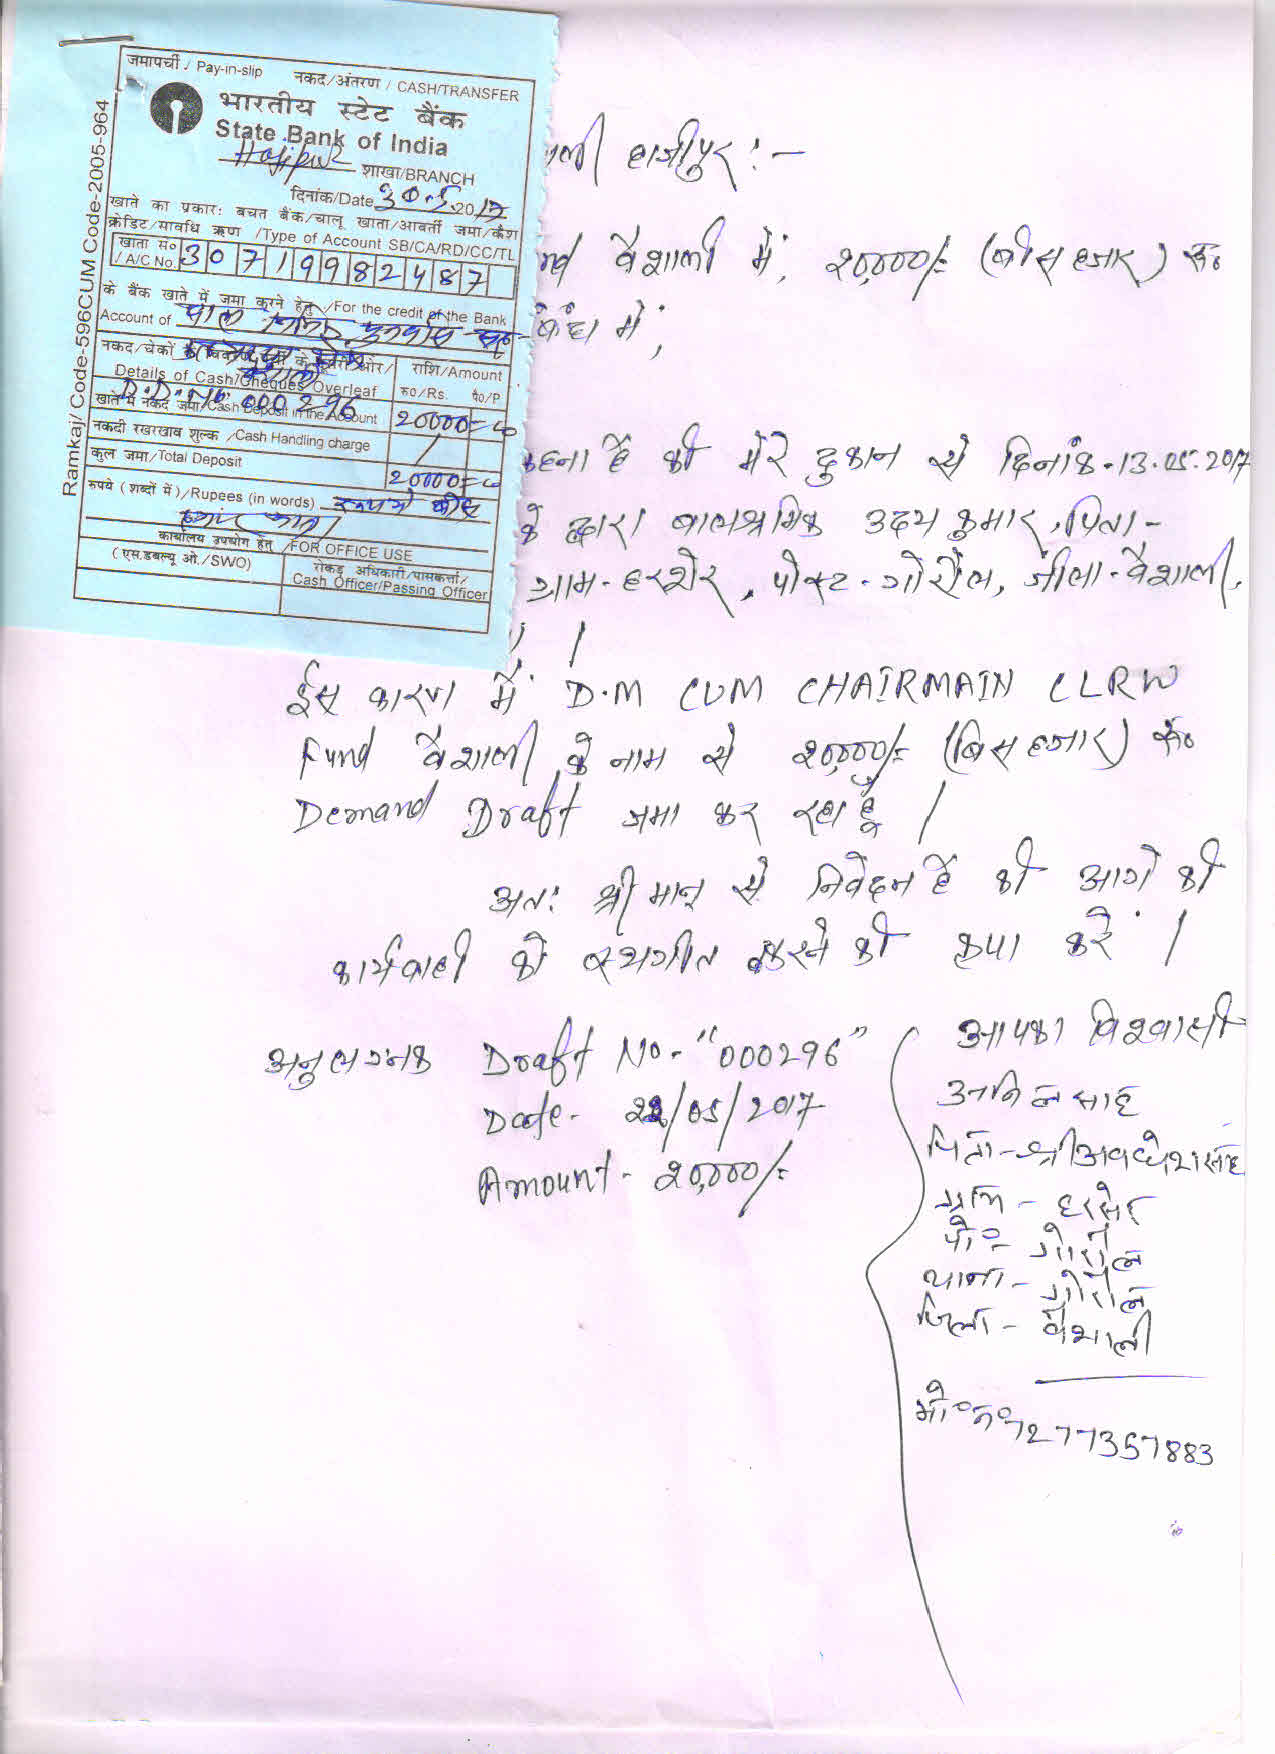 जमापर्ची / Pay-in-slip नकद/अंतरण / CASH/TRANSFER
भारतीय स्टेट बैंक
State Bank of India
Hajipur शाखा/BRANCH
दिनांक/Date 30.5.2017
खाते का प्रकार: बचत बैंक/चालू खाता/आवर्ती जमा/कैश
क्रेडिट/मावधि ऋण /Type of Account SB/CA/RD/CC/TL
खाता सं० / A/C No. 30719982487
के बैंक खाते में जमा करने हेतु /For the credit of the Bank
Account of बाल श्रमिक
नकद/चेकों /
Details of Cash/Cheques Overleaf
राशि/Amount
रु०/Rs. पै०/P.
D.D.No. 000296
खाते में नकद जमा/Cash Deposit in the Account 20000=00
नकदी रखरखाव शुल्क /Cash Handling charge
कुल जमा/Total Deposit 20000=00
रुपये (शब्दों में)/Rupees (in words) रूपये बीस
हजार मात्र
कार्यालय उपयोग हेतु /FOR OFFICE USE
(एस.डबल्यू ओ./SWO)
रोकड़ अधिकारी/पासकर्त्ता/
Cash Officer/Passing Officer
Ramkaj/ Code-596CUM Code-2005-964
हाजीपुर :-
वैशाली में, 20,000/= (बीस हजार) रू०
में,
कहना है की मेरे दुकान से दिनांक-13.05.2017
के द्वारा बालश्रमिक उदय कुमार, पिता-
ग्राम-हरशेर, पोस्ट-गोरौल, जीला-वैशाली,
।
ईस कारण मैं D.M CUM CHAIRMAIN CLRW
Fund वैशाली के नाम से 20,000/= (बिस हजार) रू०
Demand Draft जमा कर रहा हूँ ।
अतः श्रीमान् से निवेदन है की आगे की
कार्यवाही को स्थगीत करने की कृपा करें ।
अनुलग्नक Draft No- "000296"
Date- 22/05/2017
Amount- 20,000/=
आपका विश्वासी
अनिल साह
पिता-श्री अवधेश साह
ग्राम - हरसेर
पो०- गोरौल
थाना- गोरौल
जिला- वैशाली
मो०न० 7277357883